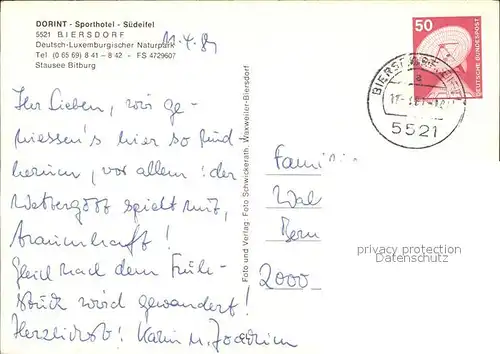 DORINT - Sporthotel - Südeifel
5521 BIERSDORF
Deutsch-Luxemburgischer Naturpark
Tel (0 65 69) 8 41 – 8 42 - FS 4729607
Stausee Bitburg
11.4.81
50
DEUTSCHE BUNDESPOST
BIERSDORF
a
5521
Ihr Lieben, wir ge-
niessen's hier so rund
herum, vor allem: der
Wettergott spielt mit,
traumhaft!
Gleich nach dem Früh-
stück wird gewandert!
Herzlichst! Karin u. Joachim
Foto und Verlag: Foto Schwickerath, Waxweiler-Biersdorf
Famili
Wal
Bern
2000
privacy protection
Datenschutz